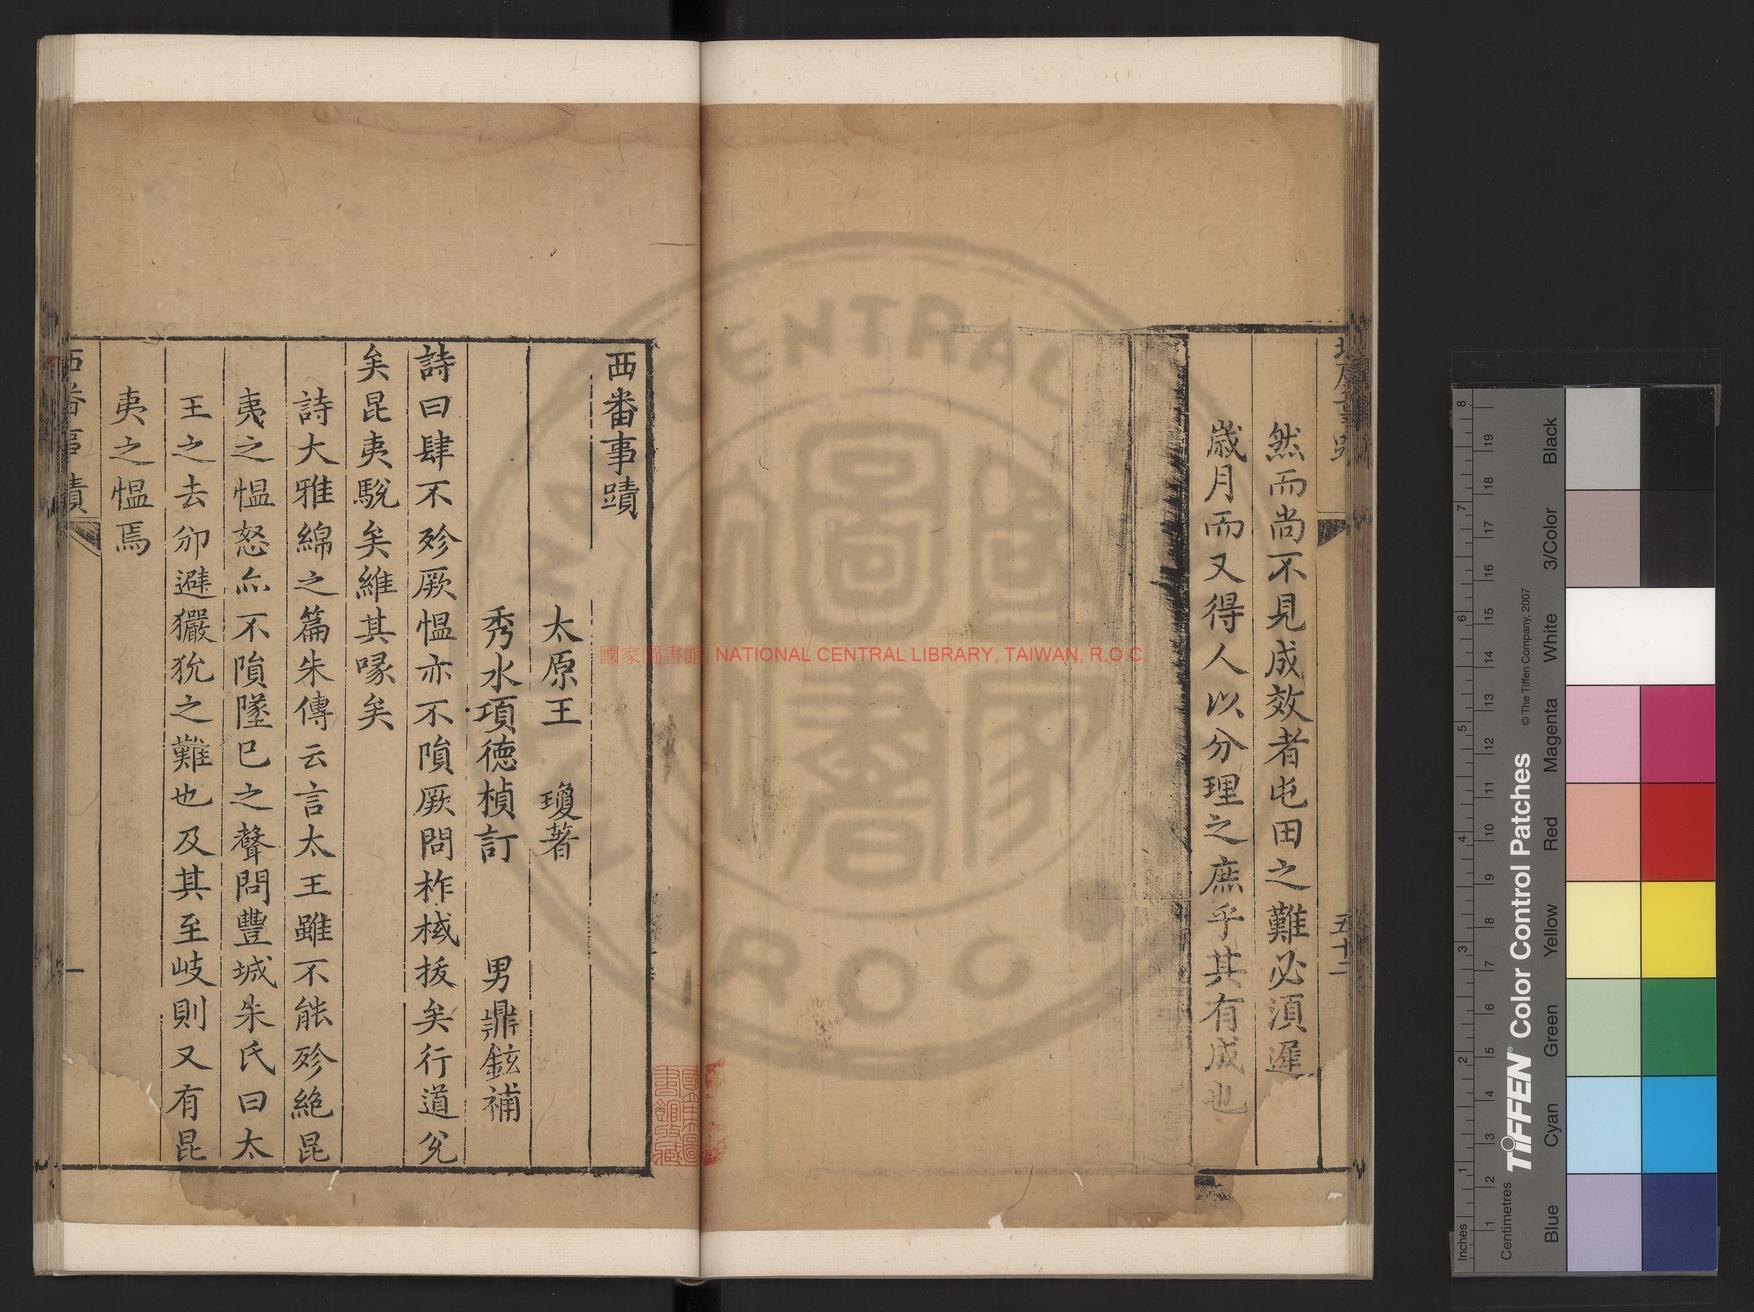 然而尚不見成效者屯田之難必須遲
歲月而又得人以分理之庶乎其有成也
五十二
西番事蹟
太原王 瓊著
秀水項德楨訂 男鼎鉉補
詩曰肆不殄厥愠亦不隕厥問柞棫拔矣行道兌
矣昆夷駾矣維其喙矣
詩大雅綿之篇朱傳云言太王雖不能殄絶昆
夷之愠怒亦不隕墜已之聲問豐城朱氏曰太
王之去邠避玁狁之難也及其至岐則又有昆
夷之愠焉
西番事蹟
一
國家圖書館 NATIONAL CENTRAL LIBRARY, TAIWAN, R.O.C.
Inches
Centimetres
TIFFEN® Color Control Patches
© The Tiffen Company, 2007
Blue
Cyan
Green
Yellow
Red
Magenta
White
3/Color
Black